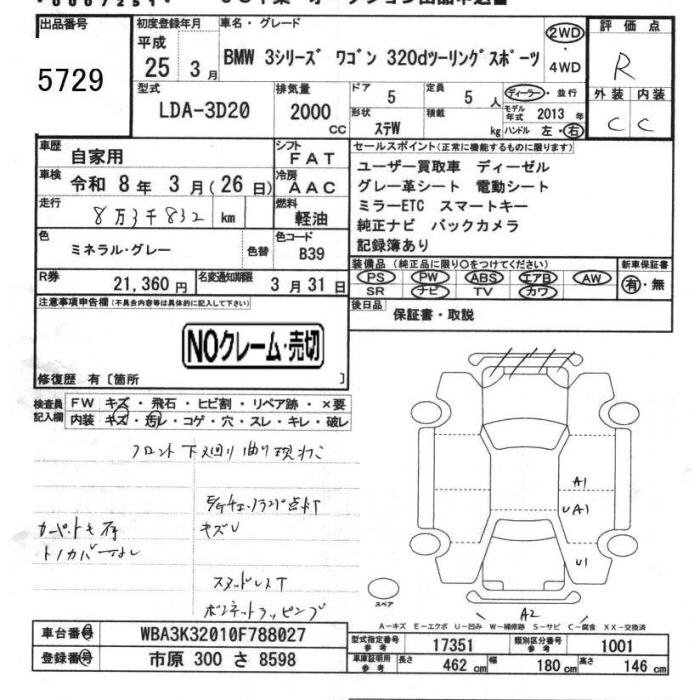 出品番号
5729
初度登録年月
平成
25 3月
車名・グレード
BMW 3シリーズ ワゴン 320dツーリングスポーツ
2WD
・
4WD
評価点
R
外装 内装
C C
型式
LDA-3D20
排気量
2000
CC
ドア
5
定員
5 人
ディーラー・並行
形状
ステW
積載
kg
モデル年式 2013 年
ハンドル 左・右
車歴
自家用
シフト
FAT
車検
令和 8年 3月(26日)
冷房
AAC
走行
8万3千832 km
燃料
軽油
色
ミネラル・グレー
色替
色コード
B39
R券
21,360円
名変通知期限
3月31日
セールスポイント(正常に機能するものに限ります)
ユーザー買取車 ディーゼル
グレー革シート 電動シート
ミラーETC スマートキー
純正ナビ バックカメラ
記録簿あり
装備品(純正品に限り○をつけてください)
PS PW ABS エアB AW
SR ナビ TV カワ
新車保証書
有・無
後日品
保証書・取説
注意事項申告欄(不具合内容等は具体的に記入して下さい)
NOクレーム・売切
修復歴 有〔箇所 〕
検査員
記入欄
FW キズ・飛石・ヒビ割・リペア跡・×要
内装 キズ・汚レ・コゲ・穴・スレ・キレ・破レ
フロント下廻り
点灯
キズU
トノカバーなし
スタッドレスT
ボンネットラッピング
A1
UA1
U1
A2
スペア
A-キズ E-エクボ U-凹み W-補修跡 S-サビ C-腐食 XX-交換済
車台番号
WBA3K32010F788027
登録番号
市原 300 さ 8598
型式指定番号
参考
17351
類別区分番号
参考
1001
車庫証明用
参考
長さ 462 cm
幅 180 cm
高さ 146 cm